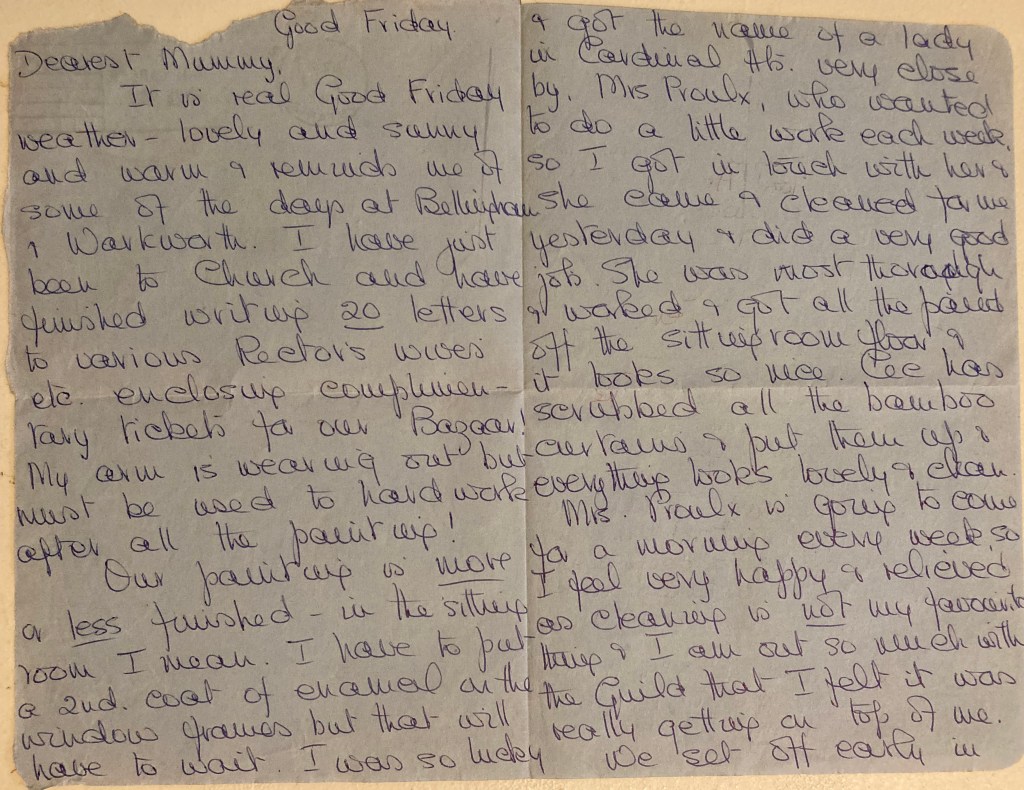 Good Friday
Dearest Mummy,
It is real Good Friday
weather - lovely and sunny
and warm & reminds me of
some of the days at Bellingham
& Warkworth. I have just
been to Church and have
finished writing 20 letters
to various Rectors wives
etc. enclosing complimen-
tary tickets for our Bazaar!
My arm is wearing out but
must be used to hard work
after all the painting!
Our painting is more
or less finished - in the sitting
room I mean. I have to put
a 2nd. coat of enamel on the
window frames but that will
have to wait. I was so lucky
& got the name of a lady
in Cardinal Hts. very close
by, Mrs Proulx, who wanted
to do a little work each week,
so I got in touch with her &
she came & cleaned for me
yesterday & did a very good
job. She was most thorough
& worked & got all the paint
off the sitting room floor &
it looks so nice. Cec has
scrubbed all the bamboo
curtains & put them up &
everything looks lovely & clean.
Mrs. Proulx is going to come
for a morning every week, so
I feel very happy & relieved
as cleaning is not my favourite
thing & I am out so much with
the Guild that I felt it was
really getting on top of me.
We set off early in